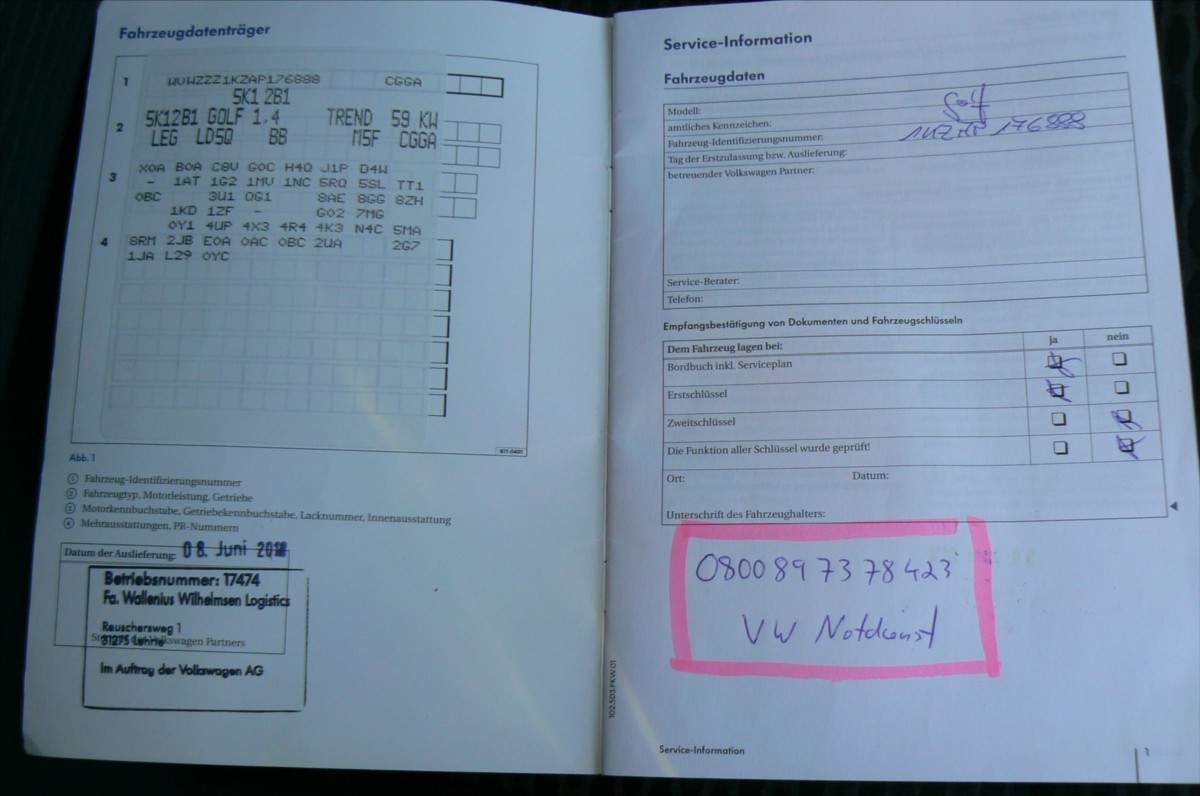 Fahrzeugdatenträger
1 WVWZZZ1KZAP176888 CGGA
5K1 2B1
2 5K12B1 GOLF 1.4 TREND 59 KW
LEG LD5Q BB M5F CGGA
3 X0A B0A C8V G0C H4Q J1P D4W
- 1AT 1G2 1MV 1NC 5RQ 5SL TT1
0BC 3U1 0G1 8AE 8GG 8ZH
1KD 1ZF - G02 7MG
0Y1 4UP 4X3 4R4 4K3 N4C 5MA
4 8RM 2JB E0A 0AC 0BC 2UA 2G7
1JA L29 0YC
B1T-0401
Abb. 1
① Fahrzeug-Identifizierungsnummer
② Fahrzeugtyp, Motorleistung, Getriebe
③ Motorkennbuchstabe, Getriebekennbuchstabe, Lacknummer, Innenausstattung
④ Mehrausstattungen, PR-Nummern
Datum der Auslieferung: 08. Juni 2010
Betriebsnummer: 17474
Fa. Wallenius Wilhelmsen Logistics
Rauschersweg 1
31275 Lehrte
Volkswagen Partners
im Auftrag der Volkswagen AG
Service-Information
Fahrzeugdaten
Modell: Golf
amtliches Kennzeichen:
Fahrzeug-Identifizierungsnummer: 1KZAP 176888
Tag der Erstzulassung bzw. Auslieferung:
betreuender Volkswagen Partner:
Service-Berater:
Telefon:
Empfangsbestätigung von Dokumenten und Fahrzeugschlüsseln
Dem Fahrzeug lagen bei: ja nein
Bordbuch inkl. Serviceplan
Erstschlüssel
Zweitschlüssel
Die Funktion aller Schlüssel wurde geprüft!
Ort: Datum:
Unterschrift des Fahrzeughalters:
0800 897 378 423
VW Notdienst
102.5D3.FKW.01
Service-Information 1